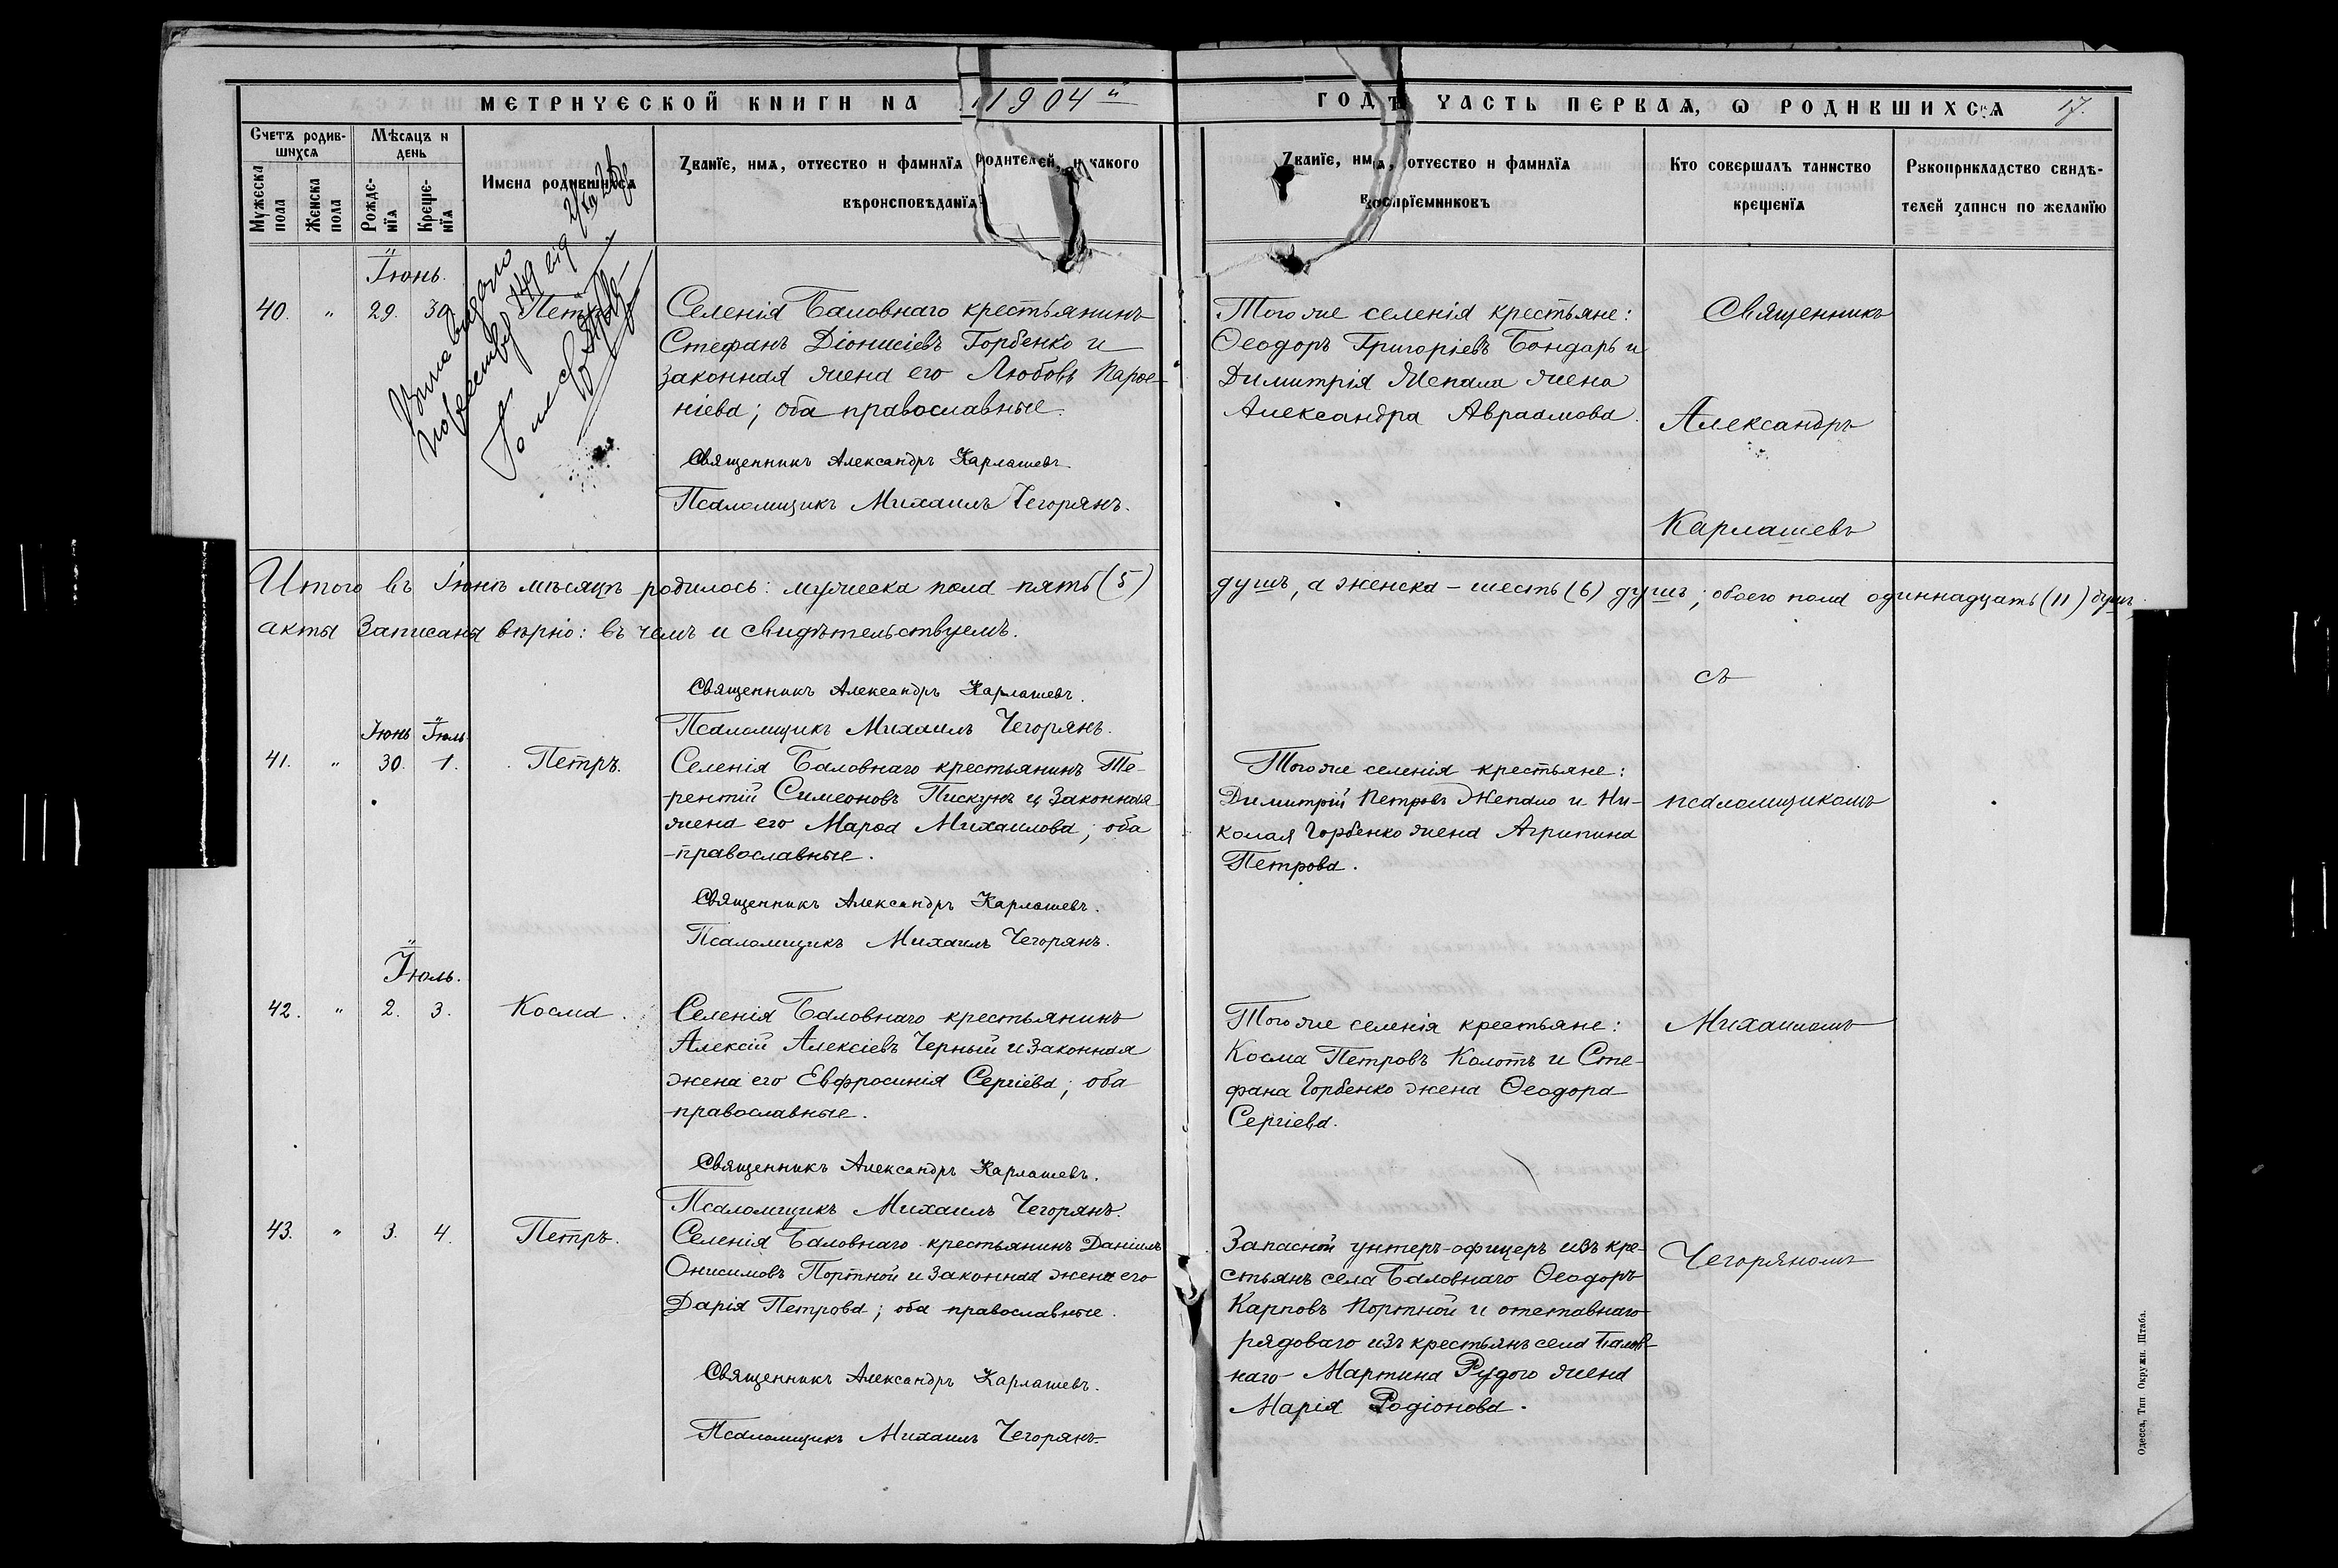 МЕТРИЧЕСКОЙ КНИГИ НА "1904"
ГОДЪ ЧАСТЬ ПЕРВАЯ, Ѡ РОДИВШИХСЯ 17.
Счетъ родив-
шихся
Мужеска пола
Женска пола
Мѣсяцъ и
день
Рожде-
нїя
Креще-
нїя
Имена родившихся
Званїе, имя, отчество и фамилїя родителей, и какого
вѣроисповѣданїя
Званїе, имя, отчество и фамилїя
воспрїемниковъ
Кто совершалъ таинство
крещенїя
Рукоприкладство свидѣ-
телей записи по желанїю
Іюнь.
40. " 29. 30. Петръ
Селенія Баловнаго крестьянинъ
Стефанъ Діонисіевъ Горбенко и
законная жена его Любовь Парѳе-
ніева; оба православные.
Священникъ Александръ Карлашевъ.
Псаломщикъ Михаилъ Чегорянъ.
Того же селенія крестьяне:
Ѳеодоръ Григоріевъ Бондарь и
Димитрія Жепала жена
Александра Авраамова.
Священникъ
Александръ
Карлашевъ
Итого въ Іюнѣ мѣсяцѣ родилось: мужеска пола пять (5)
душъ, а женска – шесть (6) душъ; обоего пола одиннадцать (11) душъ,
акты записаны вѣрно: въ чемъ и свидѣтельствуемъ.
Священникъ Александръ Карлашевъ.
Псаломщикъ Михаилъ Чегорянъ.
съ
Іюнь Іюль
41. " 30. 1. Петръ.
Селенія Баловнаго крестьянинъ Те-
рентій Симеоновъ Пискунъ и законная
жена его Марѳа Михаилова; оба
православные.
Священникъ Александръ Карлашевъ.
Псаломщикъ Михаилъ Чегорянъ.
Того же селенія крестьяне:
Димитрій Петровъ Жепало и Ни-
колая Горбенко жена Агрипина
Петрова.
псаломщикомъ
Іюль.
42. " 2. 3. Косма.
Селенія Баловнаго крестьянинъ
Алексій Алексіевъ Черный и законная
жена его Евфросинія Сергіева; оба
православные.
Священникъ Александръ Карлашевъ.
Псаломщикъ Михаилъ Чегорянъ.
Того же селенія крестьяне:
Косма Петровъ Колотъ и Сте-
фана Горбенко жена Ѳеодора
Сергіева.
Михаиломъ
43. " 3. 4. Петръ.
Селенія Баловнаго крестьянинъ Даніилъ
Онисимовъ Портной и законная жена его
Дарія Петрова; оба православные.
Священникъ Александръ Карлашевъ.
Псаломщикъ Михаилъ Чегорянъ.
Запасной унтеръ-офицеръ изъ кре-
стьянъ села Баловнаго Ѳеодоръ
Карповъ Портной и отставнаго
рядоваго изъ крестьянъ села Балов-
наго Мартина Рудого жена
Марія Родіонова.
Чегоряномъ
Одесса, Тип Окружн. Штаба.